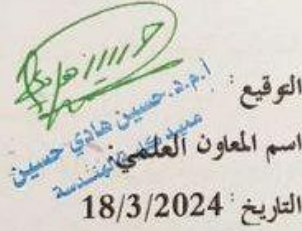 التوقيع :
أ.م.د. حسين هادي حسين
اسم المعاون العلمي:
الهندسة
التاريخ : 18/3/2024